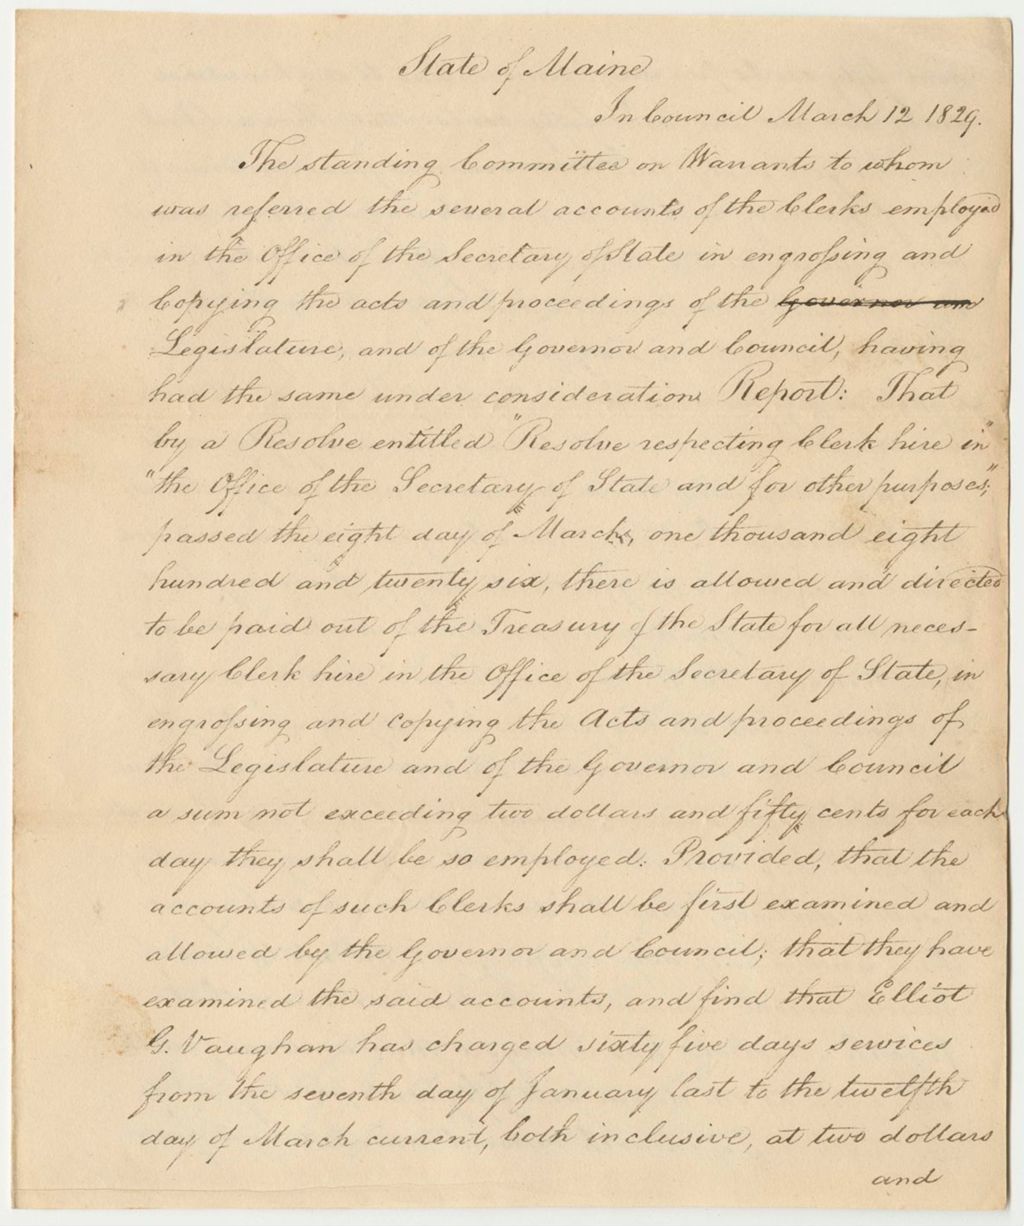 State of Maine
In Council March 12 1829.
The standing Committee on Warrants to whom
was referred the several accounts of the Clerks employed
in the Office of the Secretary of State in engrossing and
Copying the acts and proceedings of the Governor an
Legislature, and of the Governor and Council, having
had the same under consideration Report: That
by a Resolve entitled "Resolve respecting Clerk hire in"
"the Office of the Secretary of State and for other purposes,"
passed the eight day of March, one thousand eight
hundred and twenty six, there is allowed and directed
to be paid out of the Treasury of the State for all neces-
sary Clerk hire in the Office of the Secretary of State, in
engrossing and copying the Acts and proceedings of
the Legislature and of the Governor and Council
a sum not exceeding two dollars and fifty cents for each
day they shall be so employed: Provided, that the
accounts of such Clerks shall be first examined and
allowed by the Governor and Council; that they have
examined the said accounts, and find that Elliot
G. Vaughan has charged sixty five days services
from the seventh day of January last to the twelfth
day of March current, both inclusive, at two dollars
and